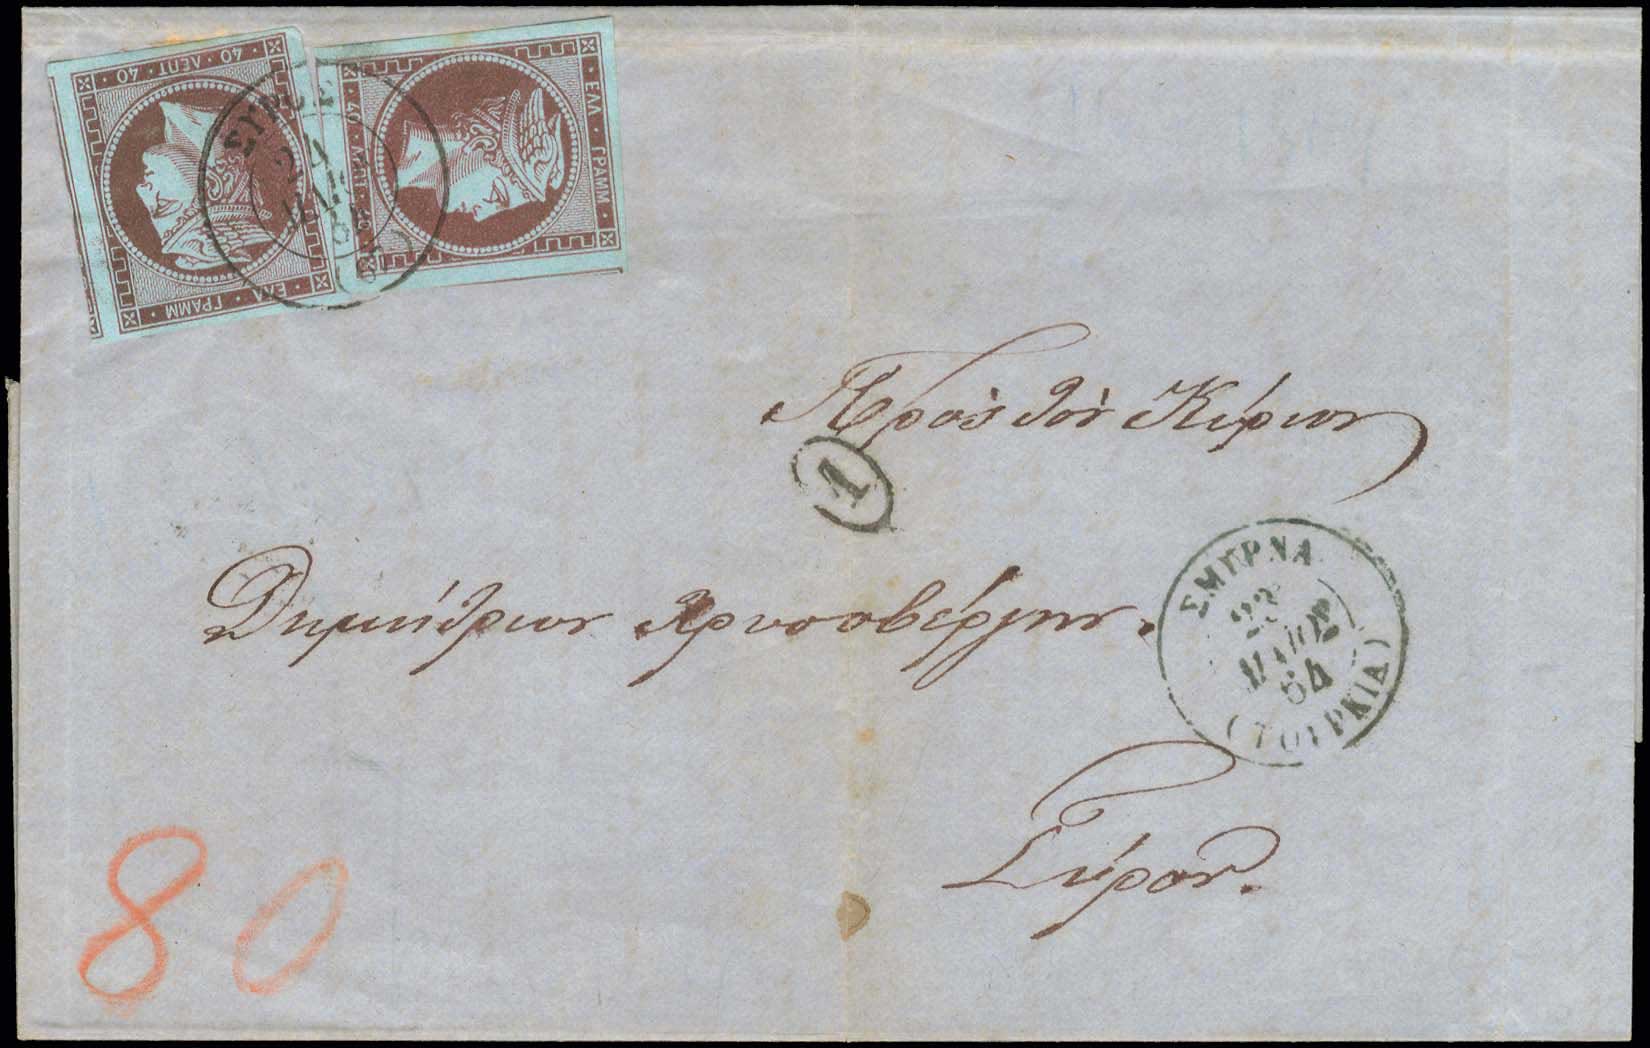 40 · ΛΕΠΤ · 40
ΕΛΛ · ΓΡΑΜΜ
40 · ΛΕΠΤ · 40
ΕΛΛ · ΓΡΑΜΜ
ΣΥΡΟΣ
Πρὸς τὸν Κύριον
1
Δημήτριον Χρυσοβέργην.
ΣΜΥΡΝΑ
23
ΜΑΡΣ
64
(ΤΟΥΡΚΙΑ)
Σύρον.
80